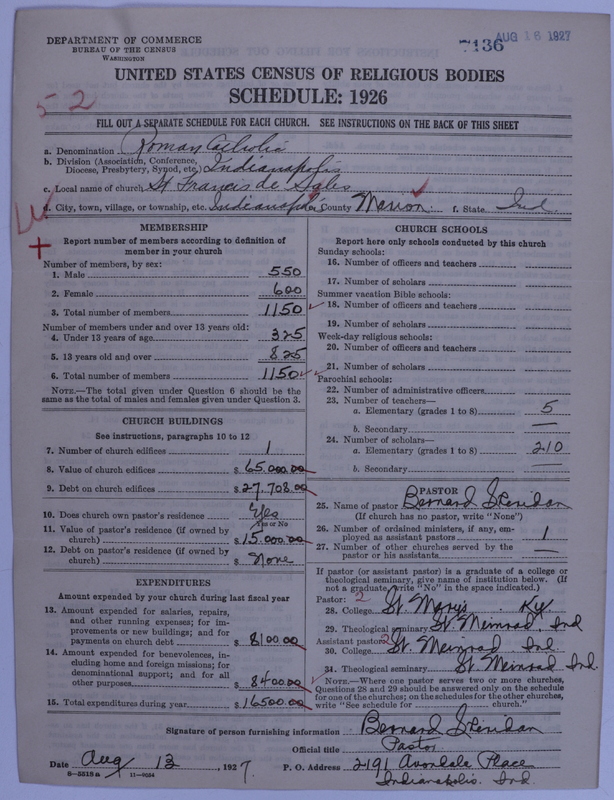 DEPARTMENT OF COMMERCE
BUREAU OF THE CENSUS
WASHINGTON
7136
AUG 16 1927
UNITED STATES CENSUS OF RELIGIOUS BODIES
SCHEDULE: 1926
52
FILL OUT A SEPARATE SCHEDULE FOR EACH CHURCH. SEE INSTRUCTIONS ON THE BACK OF THIS SHEET
a. Denomination Roman Catholic
b. Division (Association, Conference, Diocese, Presbytery, Synod, etc.) Indianapolis
c. Local name of church St Francis de Sales
d. City, town, village, or township, etc. Indianapolis County Marion f. State Ind.
MEMBERSHIP
Report number of members according to definition of
member in your church
Number of members, by sex:
1. Male 550
2. Female 600
3. Total number of members 1150
Number of members under and over 13 years old:
4. Under 13 years of age 325
5. 13 years old and over 825
6. Total number of members 1150
NOTE.—The total given under Question 6 should be
same as the total of males and females given under Question 3.
CHURCH BUILDINGS
See instructions, paragraphs 10 to 12
7. Number of church edifices 1
8. Value of church edifices $ 65,000.00
9. Debt on church edifices $ 27,708.00
10. Does church own pastor's residence? Yes
Yes or No
11. Value of pastor's residence (if owned by
church) $ 15,000.00
12. Debt on pastor's residence (if owned by
church) $ None
EXPENDITURES
Amount expended by your church during last fiscal year
13. Amount expended for salaries, repairs,
and other running expenses; for im-
provements or new buildings; and for
payments on church debt $ 8100.00
14. Amount expended for benevolences, in-
cluding home and foreign missions; for
denominational support; and for all
other purposes $ 8400.00
15. Total expenditures during year $ 16500.00
CHURCH SCHOOLS
Report here only schools conducted by this church
Sunday schools:
16. Number of officers and teachers
17. Number of scholars
Summer vacation Bible schools:
18. Number of officers and teachers
19. Number of scholars
Week-day religious schools:
20. Number of officers and teachers
21. Number of scholars
Parochial schools:
22. Number of administrative officers
23. Number of teachers—
a. Elementary (grades 1 to 8) 5
b. Secondary —
24. Number of scholars—
a. Elementary (grades 1 to 8) 210
b. Secondary —
PASTOR
25. Name of pastor Bernard Sheridan
(If church has no pastor, write "None")
26. Number of ordained ministers, if any, em-
ployed as assistant pastors 1
27. Number of other churches served by the
pastor or his assistants —
If pastor (or assistant pastor) is a graduate of a college or
theological seminary, give name of institution below. (If
not a graduate write "No" in the space indicated.)
Pastor: 2
28. College St. Mary's Ky.
29. Theological seminary St. Meinrad Ind
Assistant pastor: 2
30. College St. Meinrad Ind.
31. Theological seminary St. Meinrad Ind.
NOTE.—Where one pastor serves two or more churches,
Questions 28 and 29 should be answered only on the schedule
for one of the churches; on the schedules for the other churches,
write "See schedule for church."
Signature of person furnishing information Bernard Sheridan
Official title Pastor
Date Aug 13, 1927. P. O. Address 2191 Avondale Place
Indianapolis. Ind.
8—5518a 11—9034